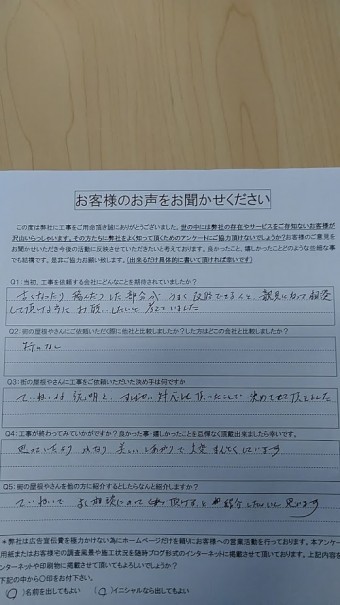 お客様のお声をお聞かせください
この度は弊社に工事をご用命頂き誠にありがとうございました。世の中には弊社の存在やサービスをご存知ないお客様が
沢山いらっしゃいます。その方たちに弊社をよく知って頂くためのアンケートにご協力頂けないでしょうか?お客様のご意見を
お聞かせいただき今後の活動に反映させていただきたいと考えております。良かったこと、嬉しかったことどのような些細な事
でも結構です。是非ご協力お願い致します。(出来るだけ具体的に書いて頂ければ幸いです)
Q1:当初、工事を依頼する会社にどんなことを期待されていましたか?
古くなったり 痛んだり した 部分が
して頂ける方に お願いしたいと 考えていました
Q2:街の屋根やさんにご依頼いただく際に他社と比較しましたか?した方はどこの会社と比較しましたか?
特になし
Q3:街の屋根やさんに工事をご依頼いただいた決め手は何ですか
ていねいな 説明と、すばやい 対応を 頂いたことで 決めさせて頂きました
Q4:工事が終わってみていかがですか?良かった事・嬉しかったことを忌憚なく頂戴出来ましたら幸いです。
思っていたより きれいな 美しい しあがりで 大変 まんぞくしています
Q5:街の屋根やさんを他の方に紹介するとしたらなんと紹介しますか?
ていねいで よく相談にのって頂けます と 紹介したいと 思います
*弊社は広告宣伝費を極力かけない為にホームページだけを頼りにお客様への営業活動を行っております。本アンケー
用紙またはお客様宅の調査風景や施工状況を随時ブログ形式のインターネットに掲載させて頂いております。上記内容を
ンターネットや印刷物に掲載させて頂いてもよろしいでしょうか?
下記の中から〇印をお付下さい。
( )名前を出してもよい ( )イニシャルなら出してもよい